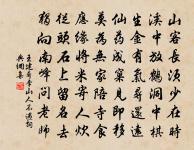 山客長須少在時
溪中放鶴洞中棋
生金有氣尋還遠
仙藥成窠見即移
莫為無家陪寺食
應緣將米寄人炊
從頭石上留名去
獨向南峰問老師
王建尋李山人不遇詩